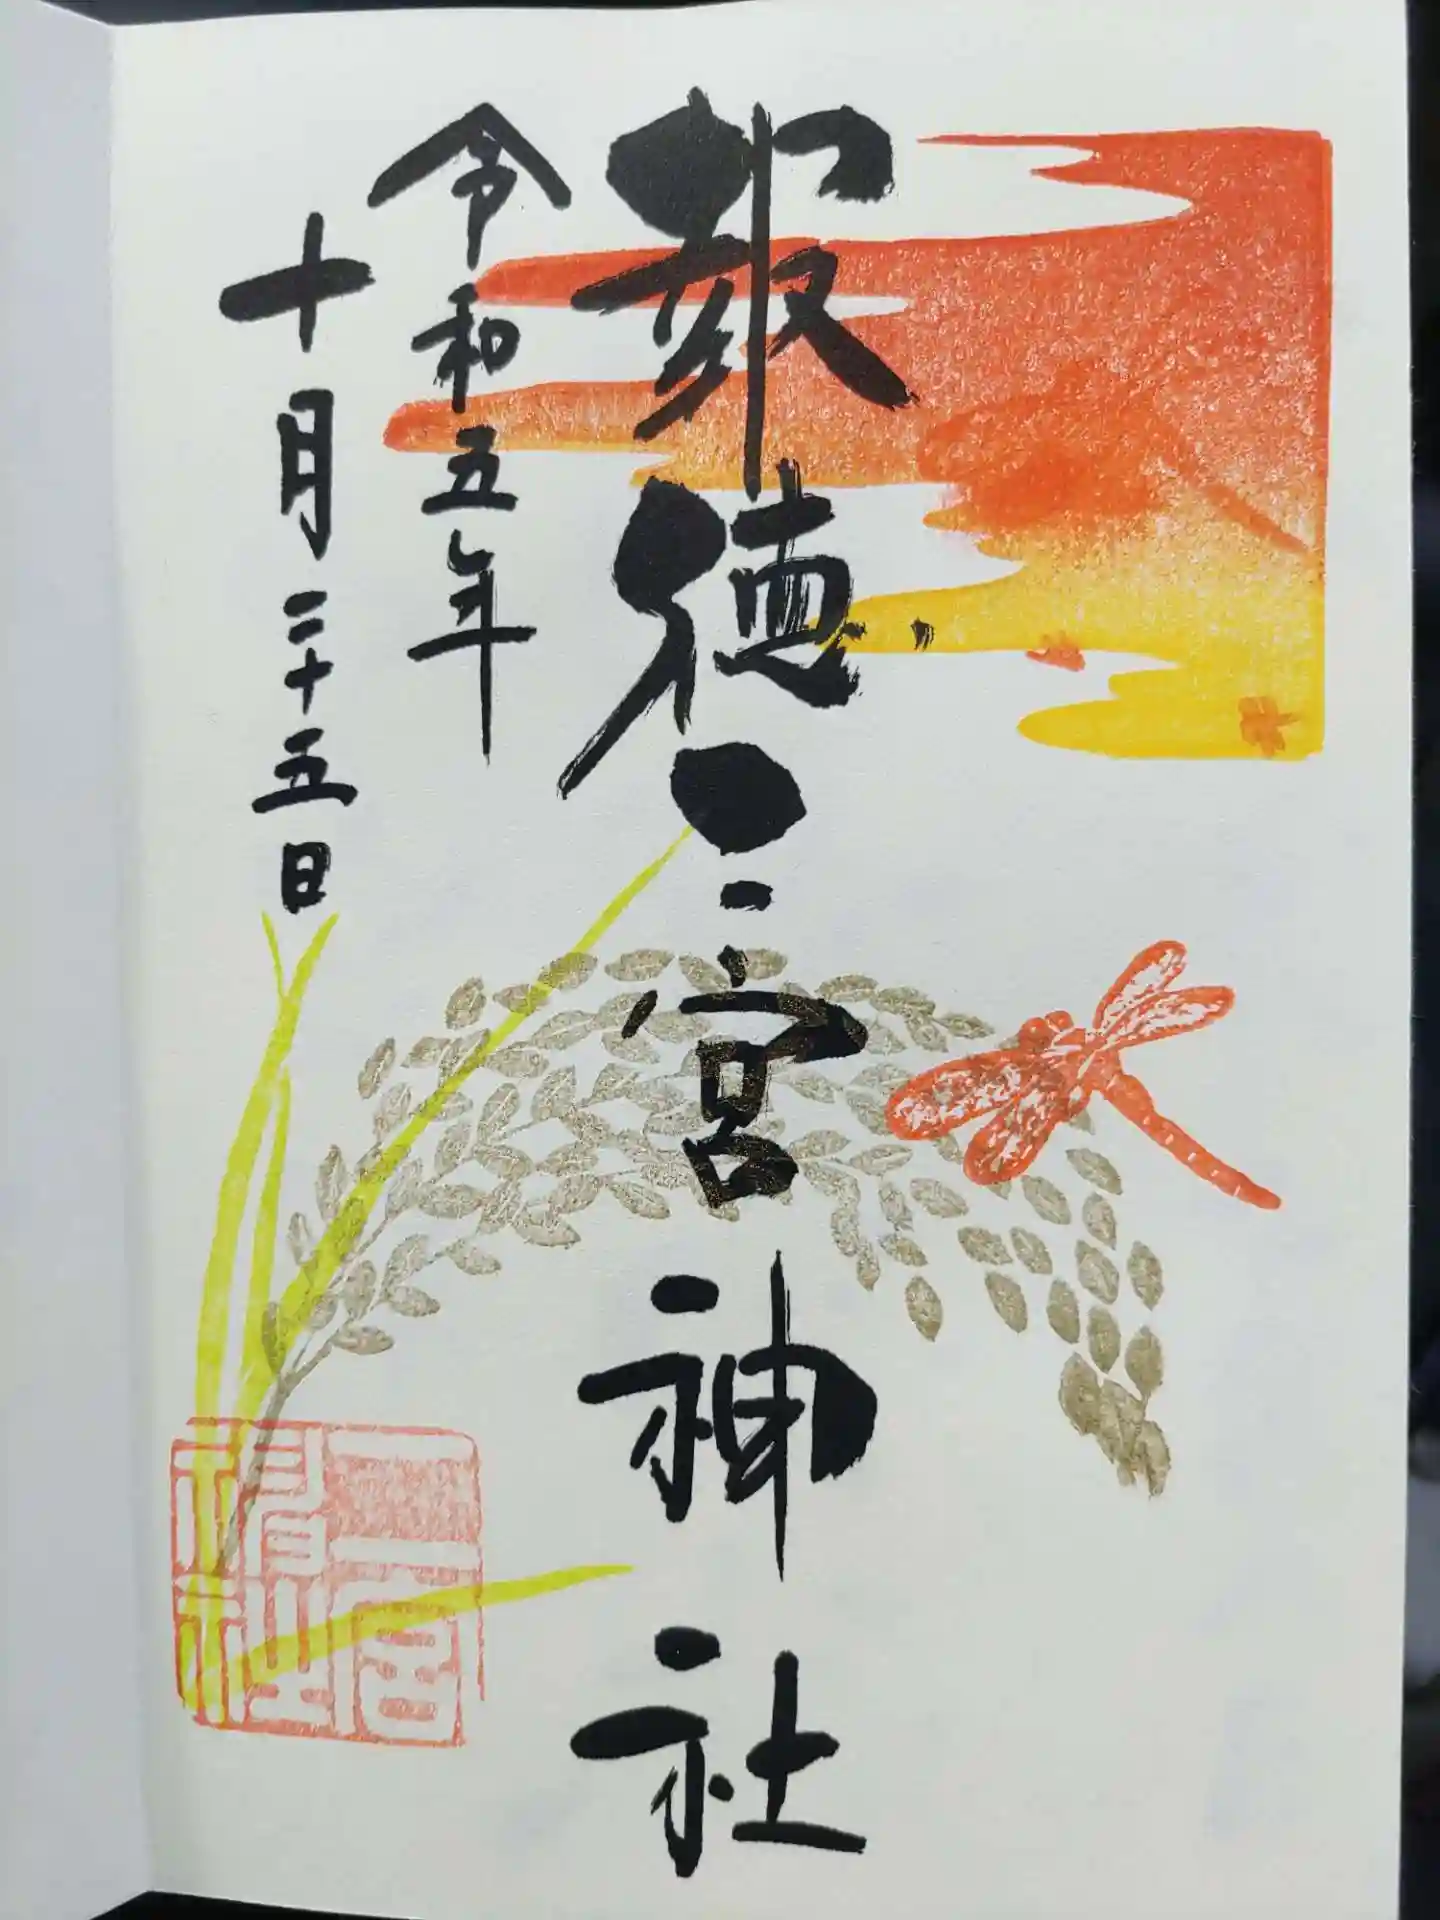 報徳二宮神社
令和五年
十月二十五日
二宮
神社